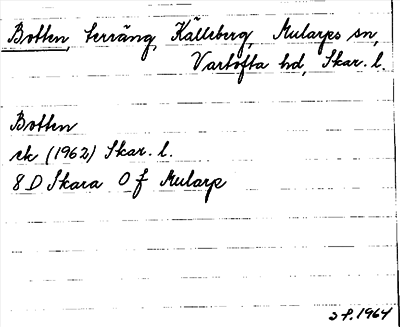 Botten, terräng, Källeberg, Mularps sn,
Vartofta hd, Skar. l.
Botten
ek (1962) Skar. l.
8 D Skara O f Mularp
1964